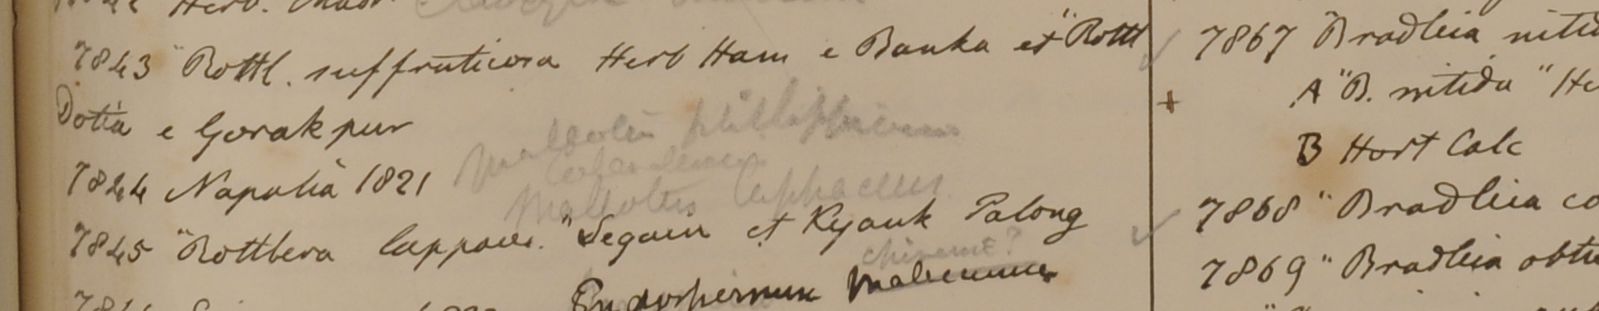 Herb.
7843 "Rottl. suffruticosa Herb Ham e Banka et "Rottl
Dotia e Gorakpur
Mallotus philippinensis
7844 Napalia 1821
Mallotus lappaceus
7845 "Rottlera lappacea." Segain et Kyauk Palong
chinense?
Endospermum malaccense
7867 "Bradleia nitid
+ A "B. nitida" He
B Hort Calc
7868 "Bradleia co
7869 "Bradleia obtu